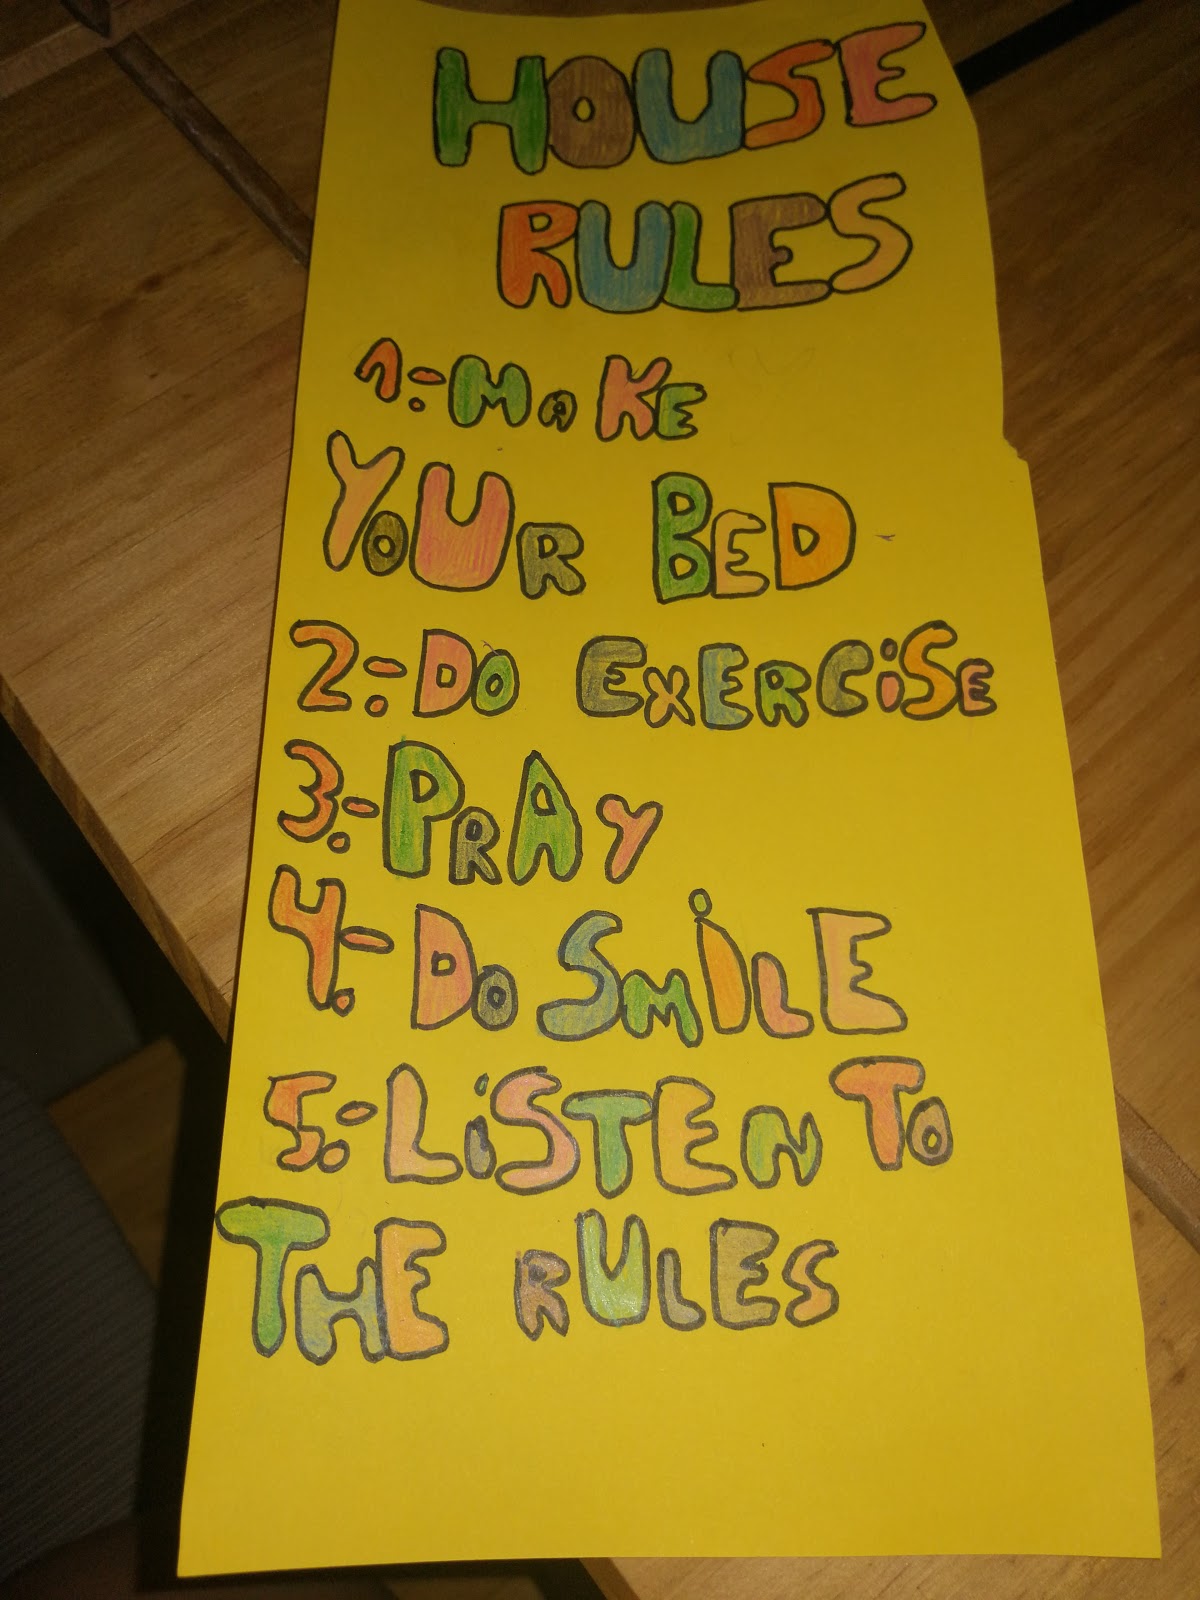 HOUSE
RULES
1.-MaKE
YoUR BED
2.-Do ExERCiSE
3.-PRAy
4.-Do SMiLE
5.-LiSTEN To
THE RULES